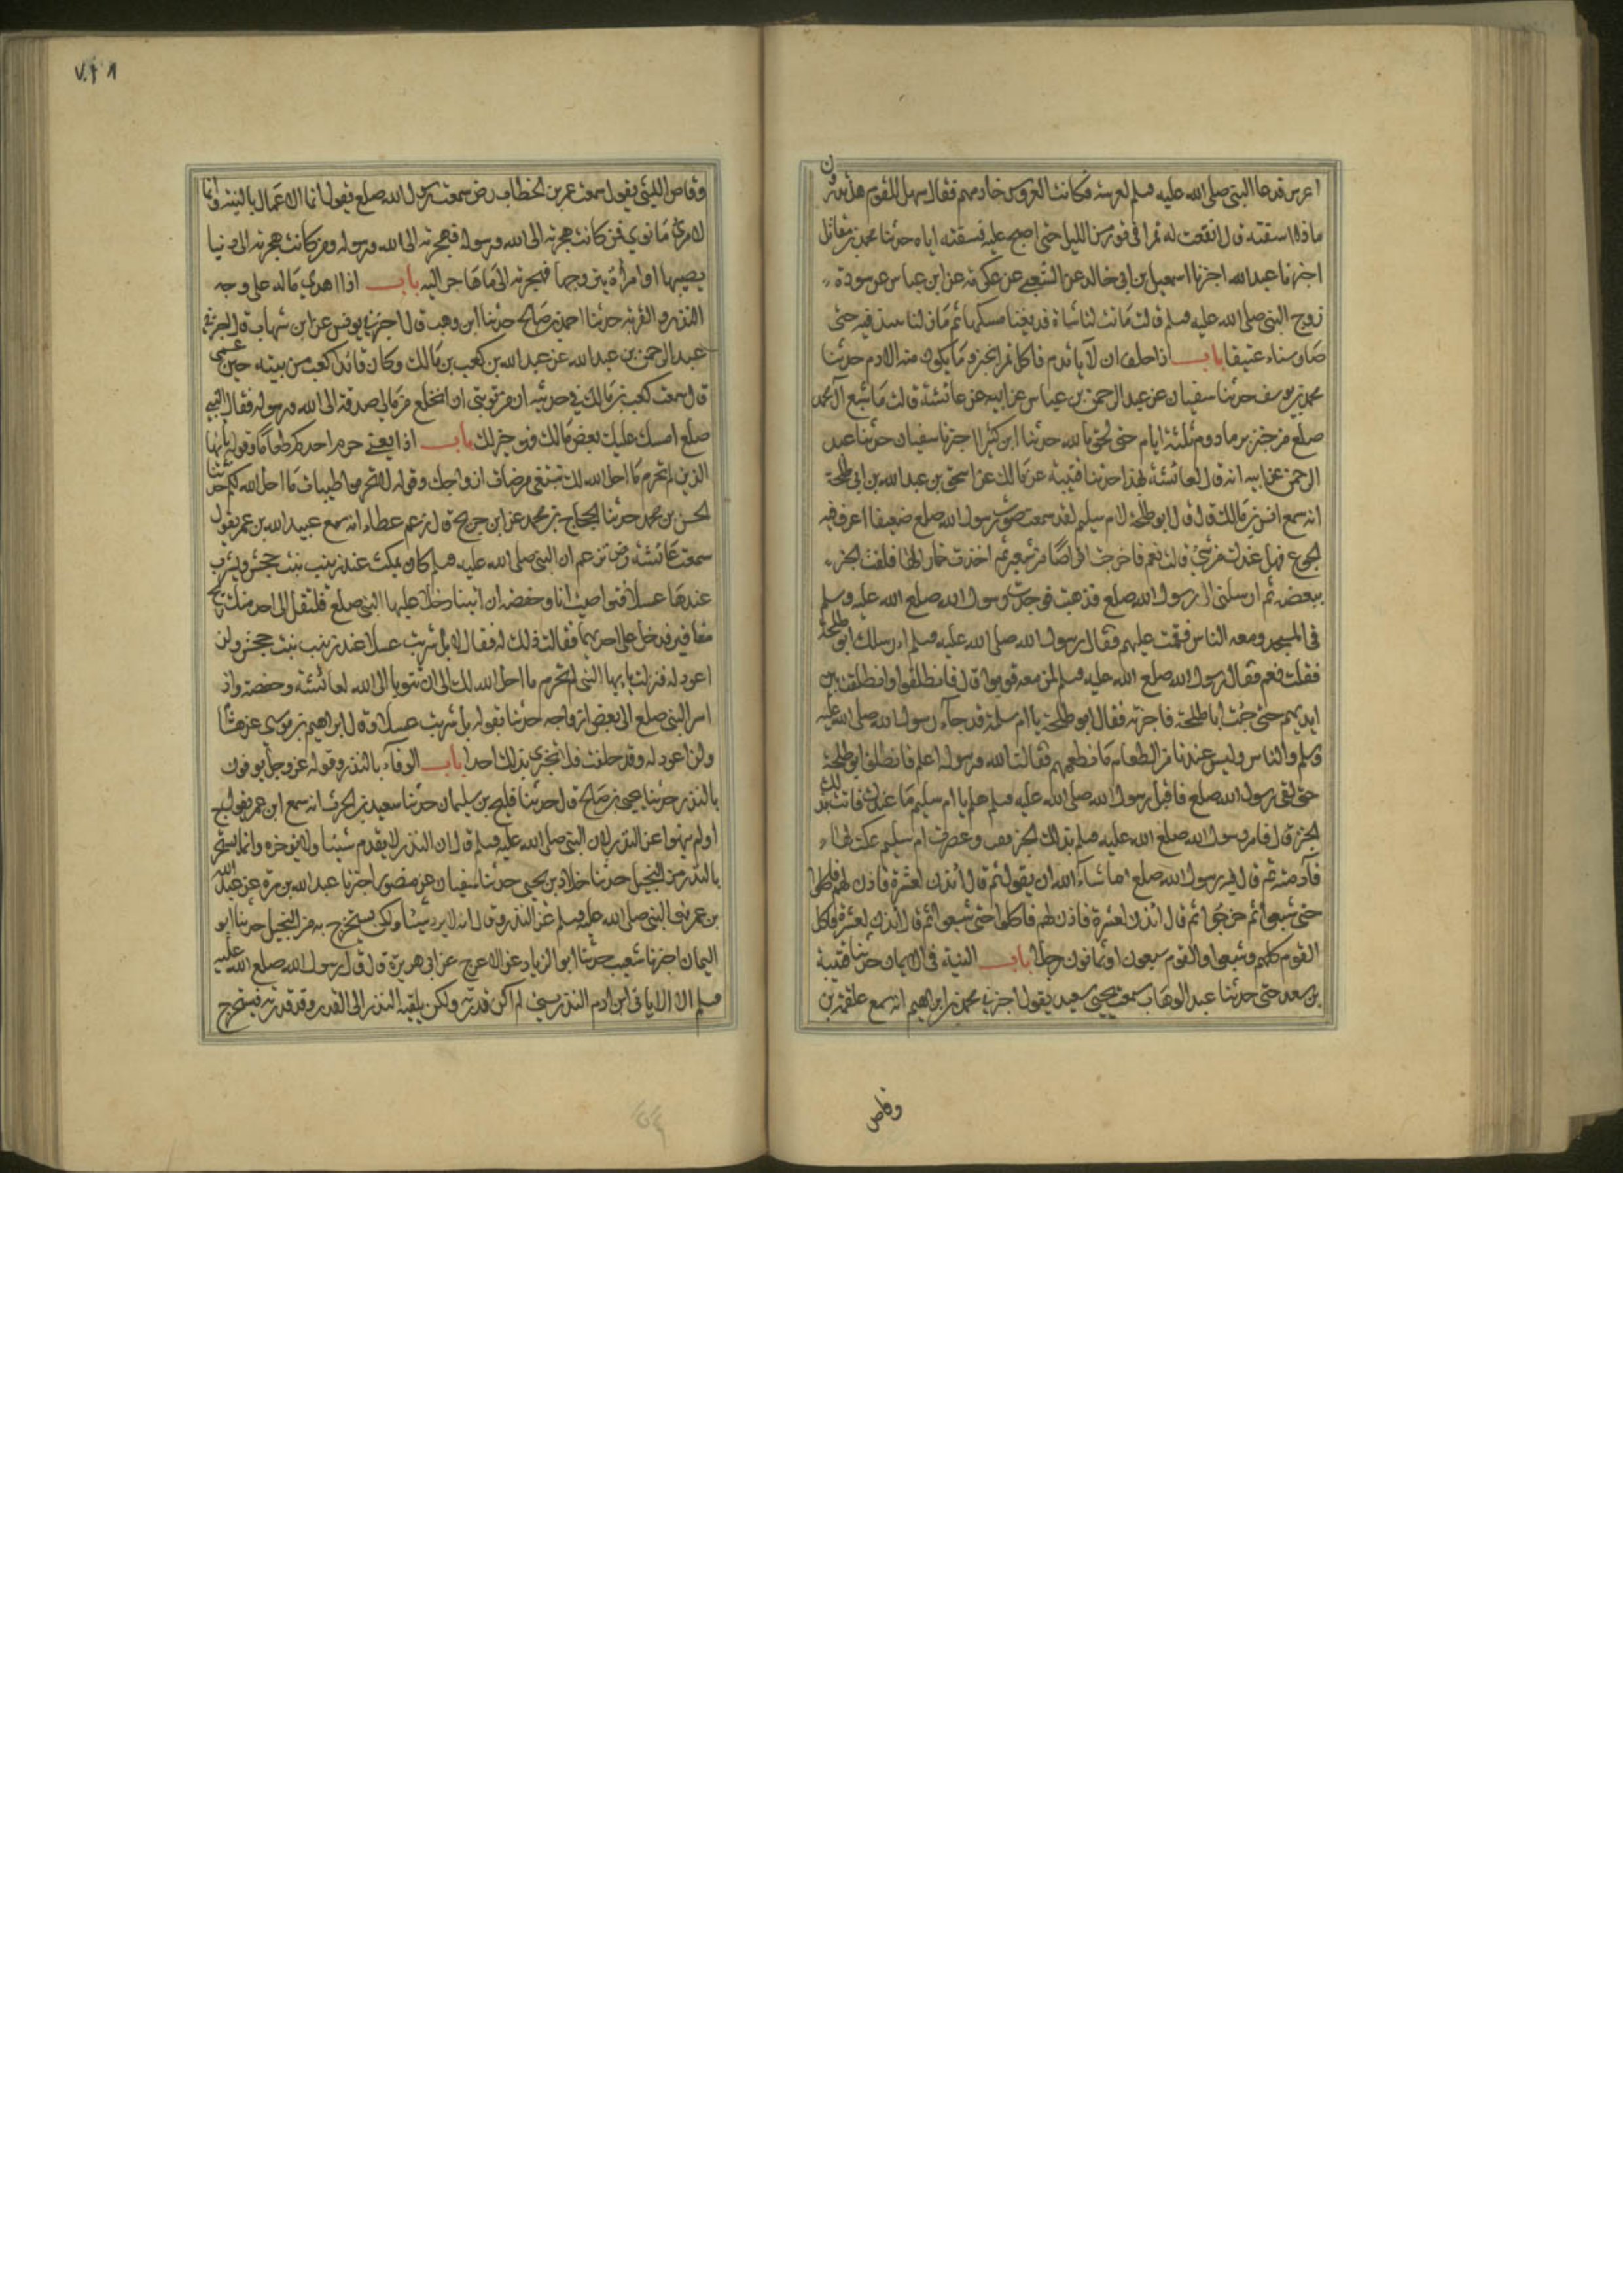 اعرس فدعا النبى صلى الله عليه وسلم لعرسه فكانت العروس خادمهم فقال سهل للقوم هل تدرون
ماذا سقته قال انقعت له تمرا فى تور من الليل حتى اصبح عليه فسقته اياه حدثنا محمد بن مقاتل
اخبرنا عبدالله اخبرنا اسمعيل بن ابى خالد عن الشعبى عن عكرمة عن ابن عباس عن سودة
زوج النبى صلى الله عليه وسلم قالت ماتت لنا شاة فدبغنا مسكها ثم مازلنا ننبذ فيه حتى
صار شنا باب اذا حلف ان لا ياتدم فاكل تمرا بخبز وما يكون منه الادم حدثنا
محمد بن يوسف حدثنا سفيان عن عبد الرحمن بن عباس عن ابيه عن عائشة قالت ما شبع آل محمد
صلع من خبز بر مادوم ثلثة ايام حتى لحق بالله حدثنا ابن كثير اخبرنا سفيان حدثنا عبد
الرحمن عن ابيه انه قال لعائشة بهذا حدثنا قتيبة عن مالك عن اسحق بن عبد الله بن ابى طلحة
انه سمع انس بن مالك قال قال ابو طلحة لام سليم لقد سمعت صوت رسول الله صلع ضعيفا اعرف فيه
الجوع فهل عندك من شئ قالت نعم فاخرجت اقراصا من شعير ثم اخذت خمارا لها فلفت الخبز
ببعضه ثم ارسلتنى الى رسول الله صلع فذهبت فوجدت رسول الله صلع الله عليه وسلم
فى المسجد ومعه الناس فقمت عليهم فقال رسول الله صلى الله عليه وسلم ارسلك ابو طلحة
فقلت نعم فقال رسول الله صلع الله عليه وسلم لمن معه قوموا قال فانطلقوا وانطلقت بين
ايديهم حتى جئت ابا طلحة فاخبرته فقال ابو طلحة يا ام سلمة قد جاء رسول الله صلى الله عليه
وسلم والناس وليس عندنا من الطعام ما نطعمهم فقالت الله ورسوله اعلم فانطلق ابو طلحة
حتى لقى رسول الله صلع فاقبل رسول الله صلى الله عليه وسلم هلم يا ام سليم ما عندك فاتت بذلك
الخبز قال فامر رسول الله صلع الله عليه وسلم بذلك الخبز ففت وعصرت ام سليم عكة لها
فآدمته ثم قال فيه رسول الله صلع ما شاء الله ان يقول ثم قال ائذن لعشرة فاذن لهم فاكلوا
حتى شبعوا ثم خرجوا ثم قال ائذن لعشرة فاذن لهم فاكلوا حتى شبعوا ثم قال ائذن لعشرة فاكل
القوم كلهم وشبعوا والقوم سبعون او ثمانون رجلا باب النية فى الايمان حدثنا قتيبة
بن سعد حتى حدثنا عبد الوهاب سمعت يحيى سعيد يقول اخبرنى محمد بن ابراهيم انه سمع علقمة بن
وقاص
وقاص الليثى يقول سمعت عمر بن الخطاب رض سمعت رسول الله صلع يقول انما الاعمال بالنية وانما
لامرئ ما نوى فمن كانت هجرته الى الله ورسوله فهجرته الى الله ورسوله ومن كانت هجرته الى دنيا
يصيبها او امرأة يتزوجها فهجرته الى ما هاجر اليه باب اذا اهدى ماله على وجه
النذر والقربة حدثنا احمد بن صالح حدثنا ابن وهب قال اخبرنى يونس عن ابن شهاب قال اخبرنى
عبد الرحمن بن عبد الله عن عبد الله بن كعب بن مالك وكان قائد كعب من بنيه حين عمى
قال سمعت كعب بن مالك فى حديثه ان من توبتى ان انخلع من مالى صدقة الى الله ورسوله فقال النبى
صلع امسك عليك بعض مالك فهو خير لك باب اذا حرم احدكم طعاما وقوله يا ايها
الذين لم تحرم ما احل الله لك تبتغى مرضات ازواجك وقوله لا تحرموا طيبات ما احل الله لكم حدثنا
الحسن بن محمد حدثنا الحجاج بن محمد عن ابن جريج قال زعم عطاء انه سمع عبيد الله بن عمر يقول
سمعت عائشة رض تزعم ان النبى صلى الله عليه وسلم كان يمكث عند زينب بنت جحش ويشرب
عندها عسلا فتواصيت انا وحفصة ان ايتنا دخل عليها النبى صلع فلتقل انى اجد منك ريح
مغافير فدخل على احديهما فقالت ذلك له فقال لا بل شربت عسلا عند زينب بنت جحش ولن
اعود له فنزلت يا ايها النبى لم تحرم ما احل الله لك الى ان تتوبا الى الله لعائشة وحفصة واذ
اسر النبى صلع الى بعض ازواجه حديثا لقوله بل شربت عسلا وقال ابراهيم بن موسى عن هشام
ولن اعود له وقد حلفت فلا تخبرى بذلك احدا باب الوفاء بالنذر وقوله عز وجل يوفون
بالنذر حدثنا يحيى بن صالح قال حدثنا فليح بن سليمان حدثنا سعيد بن الحرث انه سمع ابن عمر يقول
اولم ينهوا عن النذر ان النبى صلى الله عليه وسلم قال ان النذر لا يقدم شيئا ولا يؤخره وانما يستخرج
بالنذر من البخيل حدثنا خلاد بن يحيى حدثنا سفيان عن منصور اخبرنا عبد الله بن مرة عن عبد الله
بن عمر نهى النبى صلى الله عليه وسلم عن النذر وقال انه لا يرد شيئا ولكن يستخرج به من البخيل حدثنا ابو
اليمان اخبرنا شعيب حدثنا ابو الزناد عن الاعرج عن ابى هريرة قال قال رسول الله صلع الله عليه
وسلم لا ياتى ابن ادم النذر بشئ لم اكن قدرته ولكن يلقيه النذر الى القدر وقد قدرته فيستخرج